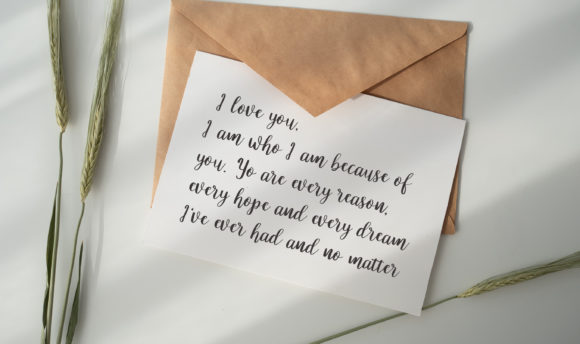 I love you.
I am who I am because of
you. Yo are every reason,
every hope and every dream
I've ever had and no matter